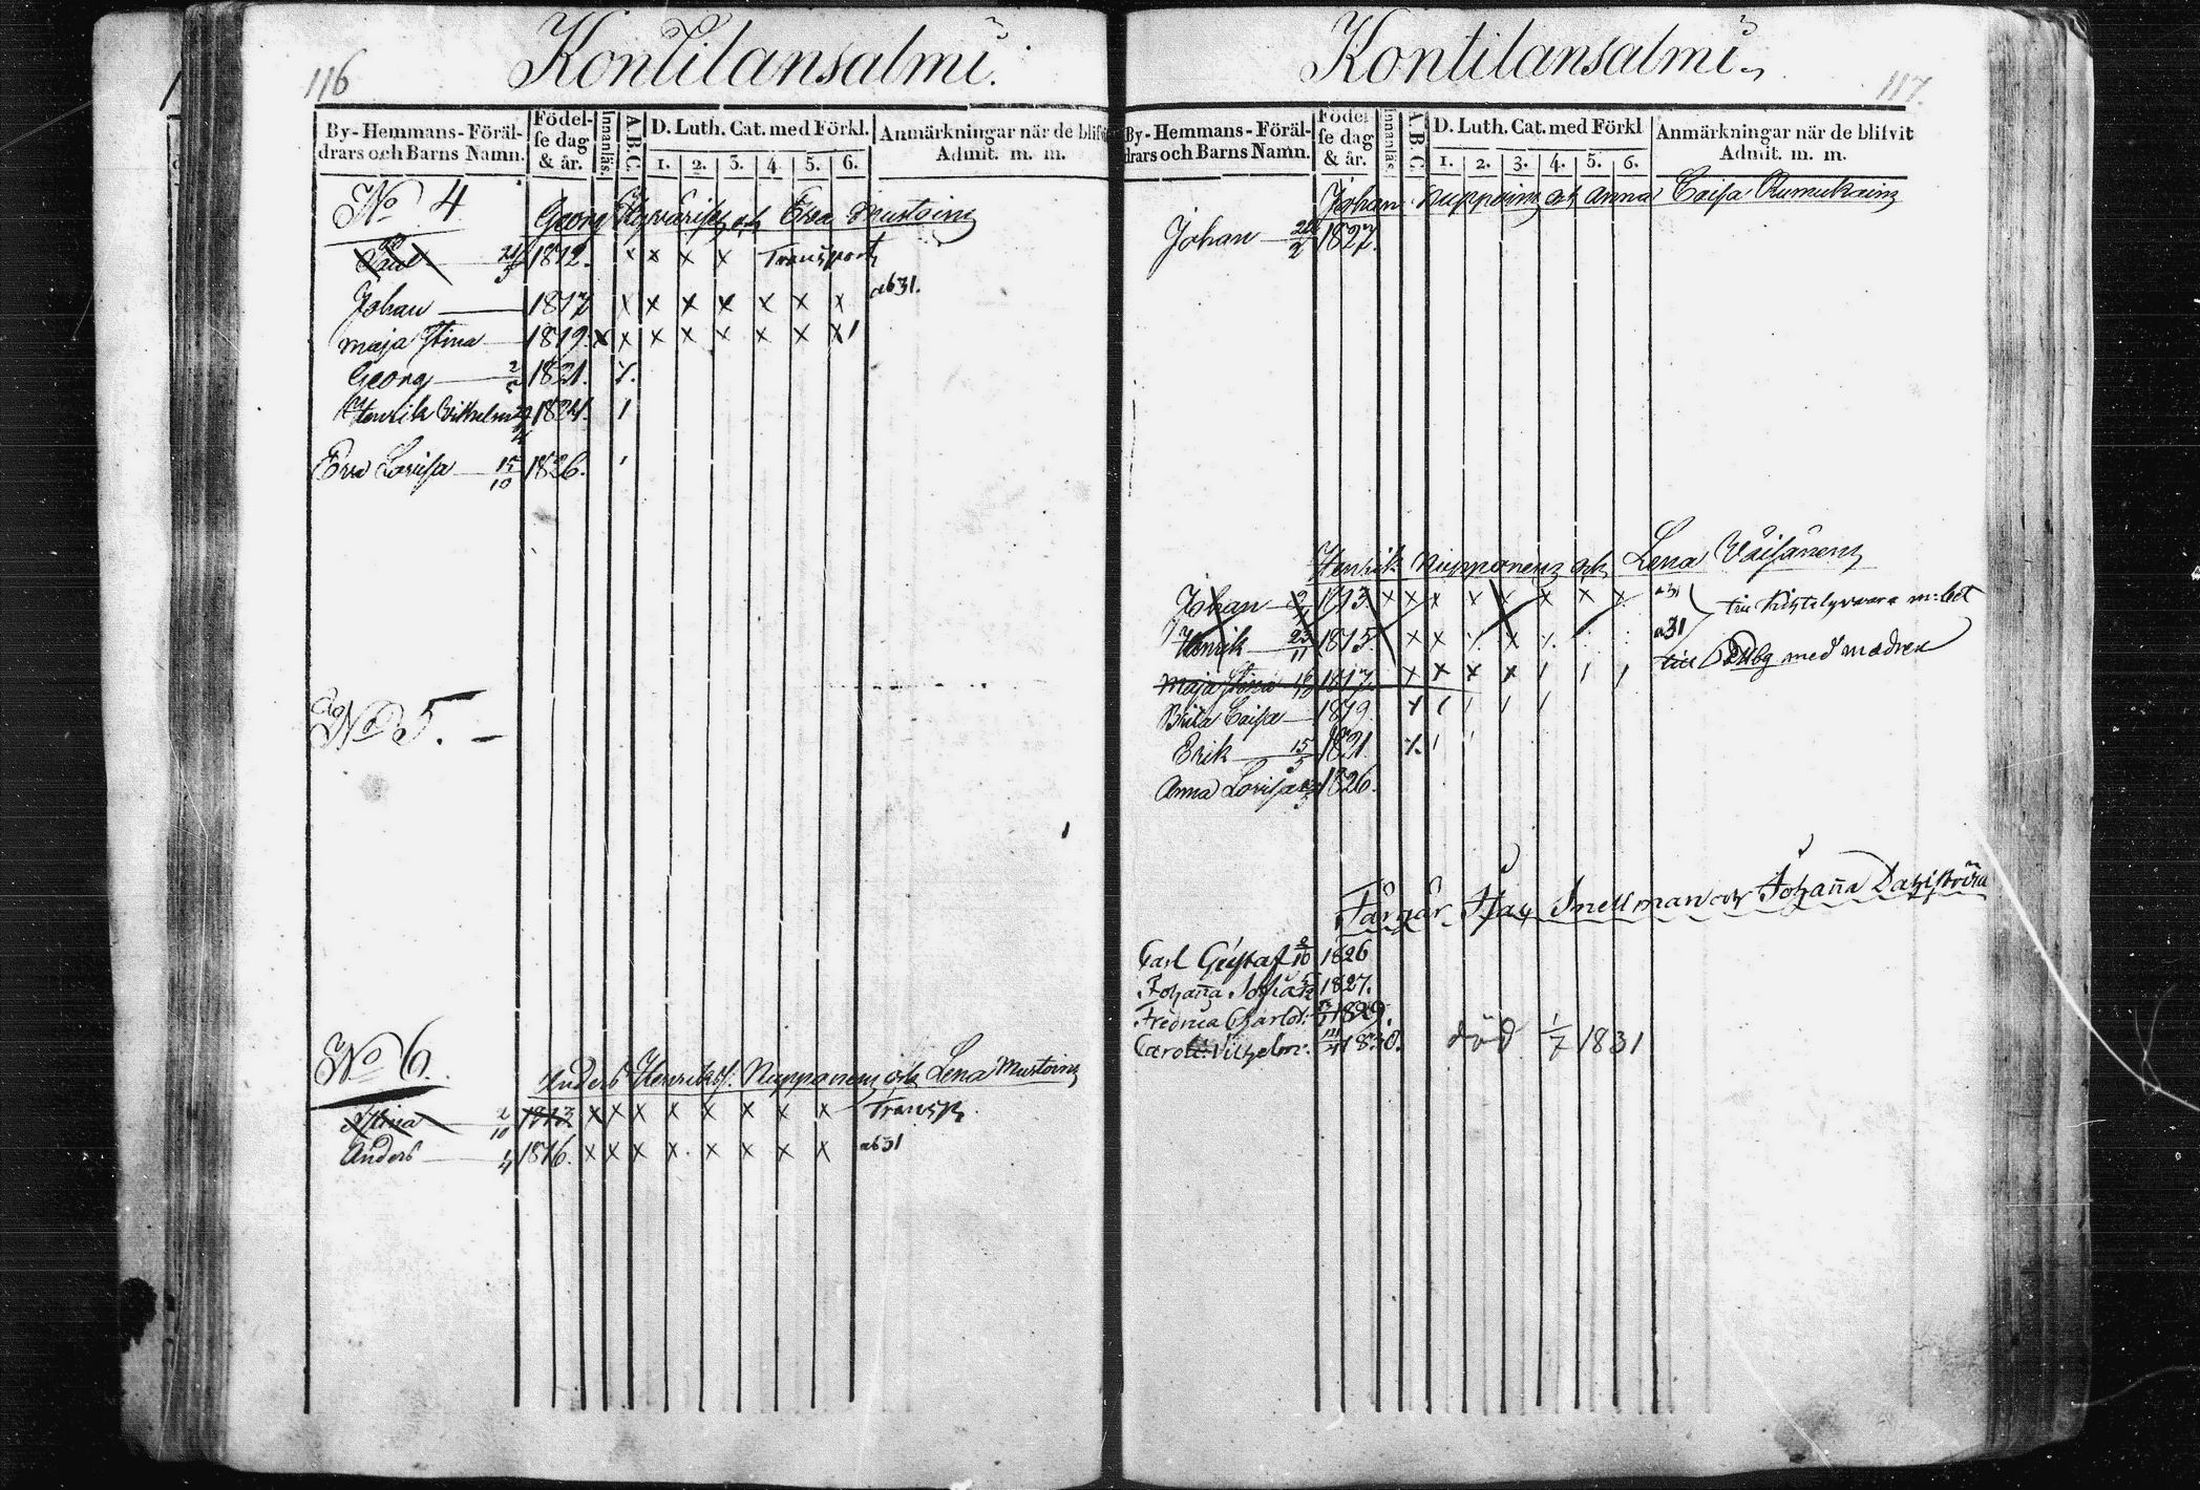 116
Kontilansalmi.
By-Hemmans-Föräl-
drars och Barns Namn.
Födel-
se dag
& år.
Innanläs.
A.B.C.
D. Luth. Cat. med Förkl.
1. 2. 3. 4. 5. 6.
Anmärkningar när de blifvit
Admit. m. m.
No 4
Georg och Eva Mustoin
Paul 1812. x x x x Transport
Johan 1817 x x x x x x x ab31.
Maja Stina 1819. x x x x x x x x 1
Georg 1821.
Henrik Vilhelm 1824. 1
Eva Lovisa 15/10 1826.
No 5.
No 6.
Anders Henriks. Nupponen och Lena Mustoin
Stina 2/10 1813 x x x x x x x x Transp.
Anders 1/4 1816. x x x x x x x x ab31
117.
Kontilansalmi
By-Hemmans-Föräl-
drars och Barns Namn.
Födel-
se dag
& år.
Innanläs.
A.B.C.
D. Luth. Cat. med Förkl
1. 2. 3. 4. 5. 6.
Anmärkningar när de blifvit
Admit. m. m.
Johan och Anna Caisa
Johan 1827.
Henrik Nupponen och Lena Väisänen
Johan 1813. x x x x x x x x a31
Henrik 23/11 1815. x x x a31
till med modren
Maja Stina 1817 x x x x 1 1 1
Brita Caisa 1819
Erik 15/5 1821
Anna Lovisa 1826.
Färgar Isac Snellman och Johanna Dahlström
Carl Gustaf 1826
Johanna Sofia 1827.
Fredrica Charlot. 1829.
Carol. Vilhelm. 1830. död 1/7 1831